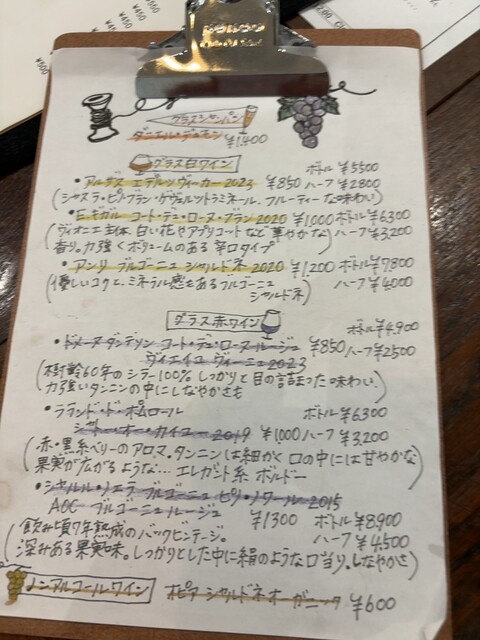 ¥450
¥450
¥450
¥500
グラスシャンパン
ダニエル・デュモン ¥1,400
グラス白ワイン
ボトル ¥5500
・アルザス エデルツヴィーカー 2023 ¥850 ハーフ ¥2800
(シャスラ・ピノ・ブラン・ゲヴュルツトラミネール、フルーティーな味わい)
・E.ギガル コート・デュ・ローヌ・ブラン 2020 ¥1000 ボトル ¥6300
(ヴィオニエ主体、白い花やアプリコットなど華やかな ハーフ ¥3,200
香り。力強くボリュームのある辛口タイプ)
・アンリ ブルゴーニュ シャルドネ 2020 ¥1,200 ボトル ¥7800
(優しいコクと、ミネラル感もあるブルゴーニュ ハーフ ¥4000
シャルドネ)
グラス赤ワイン
ボトル ¥4,900
・ドメーヌ ダンデゾン コート・デュ・ローヌ ルージュ ¥850 ハーフ ¥2500
ヴィエイユ ヴィーニュ 2023
(樹齢60年のシラー100% しっかりと目の詰まった味わい。
力強いタンニンの中にしなやかさも)
・ラランド・ド・ポムロール ボトル ¥6300
シャトー・オー・カイユー 2019 ¥1000 ハーフ ¥3,200
(赤・黒系ベリーのアロマ。タンニンは細かく口の中には甘やかな
果実が広がるような… エレガント系 ボルドー)
・シャルル・ノエラ ブルゴーニュ ピノ・ノワール 2015
AOC ブルゴーニュ ルージュ ¥1300 ボトル ¥8,900
(飲み頃7年熟成のバックビンテージ。 ハーフ ¥4,500
深みある果実味。しっかりとした中に絹のような口当り。しなやかさ)
ノンアルコールワイン オピア シャルドネ オーガニック ¥600